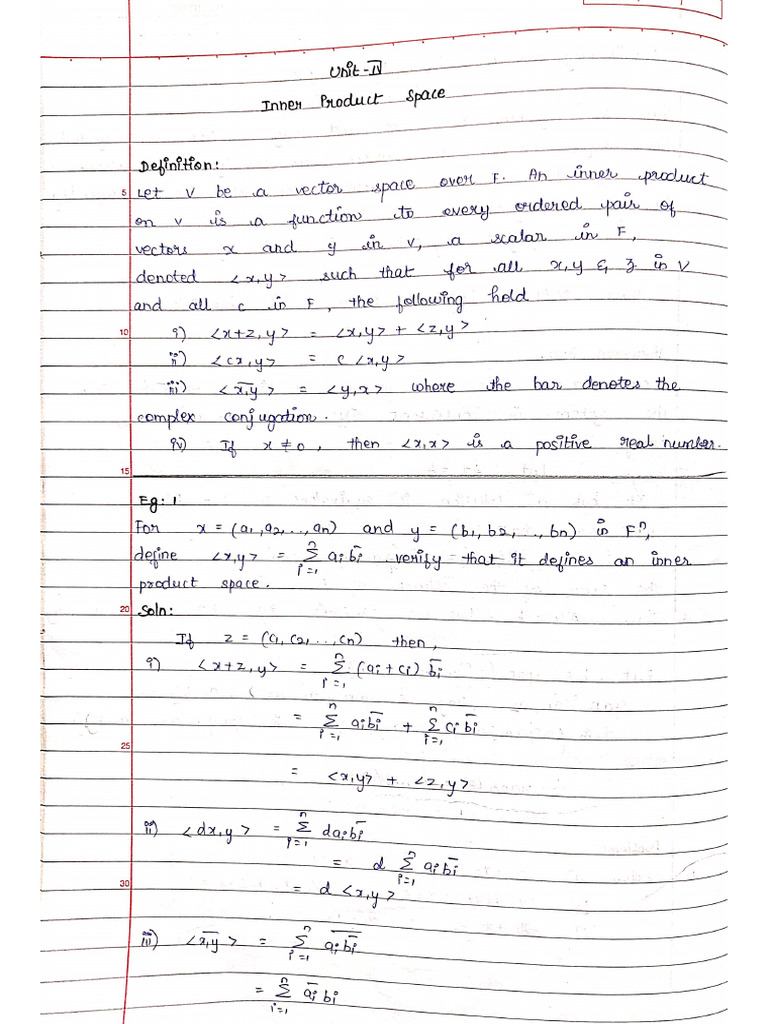 Unit-IV
Inner Product Space
Definition:
5 Let V be a vector space over F. An inner product
on V is a function to every ordered pair of
vectors x and y in V, a scalar in F,
denoted <x,y> such that for all x,y & z in V
and all c in F, the following hold
10 i) <x+z,y> = <x,y> + <z,y>
ii) <cx,y> = c <x,y>
iii) <x̄,ȳ> = <y,x> where the bar denotes the
complex conjugation.
iv) If x ≠ 0, then <x,x> is a positive real number.
15
Eg: 1
For x = (a₁,a₂,...,aₙ) and y = (b₁,b₂,...,bₙ) in Fⁿ,
define <x,y> = Σⁿᵢ₌₁ aᵢb̄ᵢ verify that it defines an inner
product space.
20 Soln:
If z = (c₁,c₂,...,cₙ) then,
i) <x+z,y> = Σⁿᵢ₌₁ (aᵢ+cᵢ) b̄ᵢ
= Σⁿᵢ₌₁ aᵢb̄ᵢ + Σⁿᵢ₌₁ cᵢb̄ᵢ
25
= <x,y> + <z,y>
ii) <dx,y> = Σⁿᵢ₌₁ daᵢb̄ᵢ
= d Σⁿᵢ₌₁ aᵢb̄ᵢ
30 = d <x,y>
iii) <x̄,ȳ> = Σⁿᵢ₌₁ \overline{aᵢb̄ᵢ}
= Σⁿᵢ₌₁ āᵢbᵢ